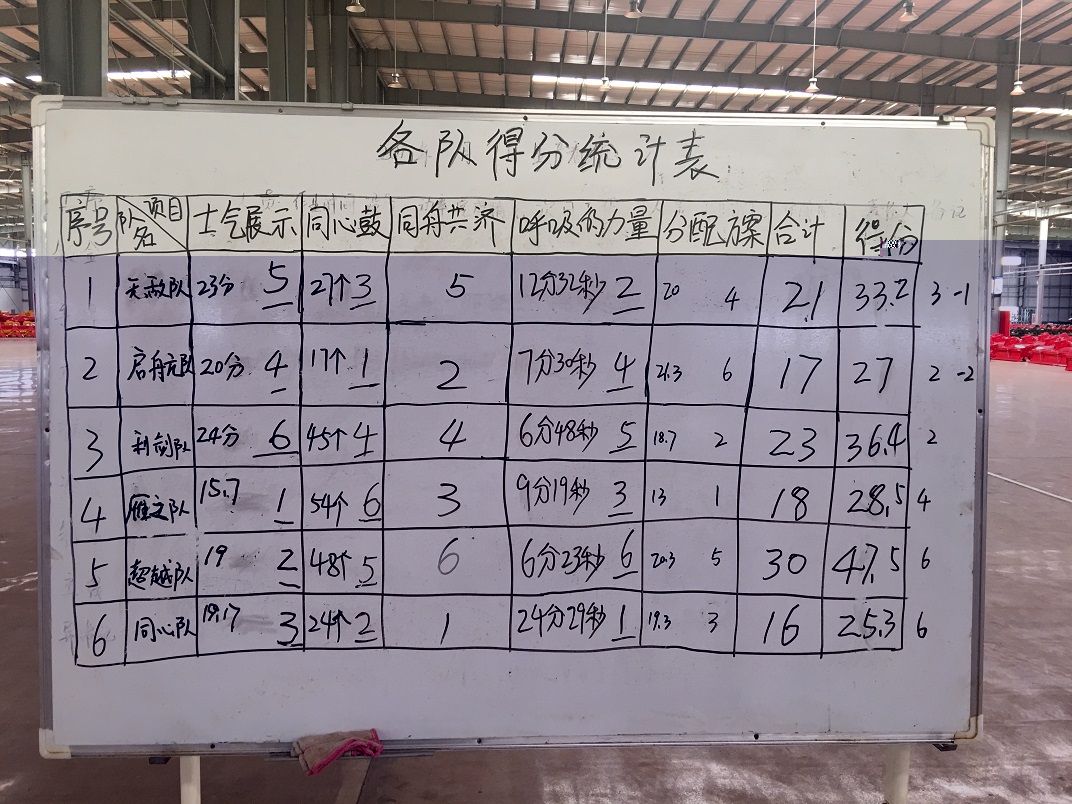 各队得分统计表
序号 队名 项目 士气展示 同心鼓 同舟共济 呼吸的力量 分配方案 合计 得份
1 无敌队 23分 5 27个 3 5 12分32秒 2 20 4 21 33.2 3 -1
2 启航队 20分 4 17个 1 2 7分30秒 4 21.3 6 17 27 2 -2
3 利剑队 24分 6 45个 4 4 6分48秒 5 18.7 2 23 36.4 2
4 雁之队 15.7 1 54个 6 3 9分19秒 3 13 1 18 28.5 4
5 超越队 19 2 48个 5 6 6分23秒 6 20.3 5 30 47.5 6
6 同心队 19.17 3 24个 2 1 24分29秒 1 19.3 3 16 25.3 6